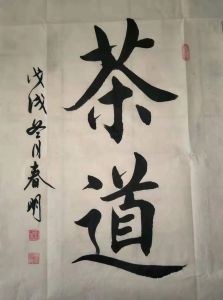 茶道
戊戌冬月春明